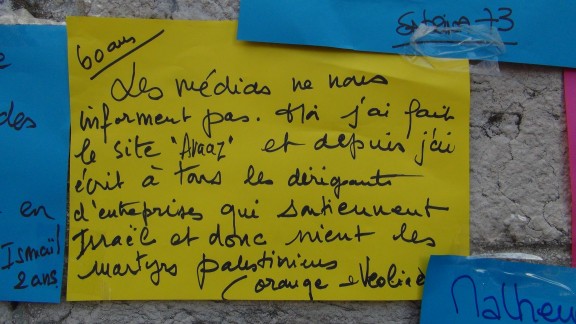 60 ans
Les médias ne nous
informent pas. Moi j'ai fait
le site "Avaaz" et depuis j'ai
écrit à tous les dirigeants
d'entreprises qui soutiennent
Israël et donc nient les
martyrs palestiniens
(orange
des
en
Ismaïl
2 ans
+3